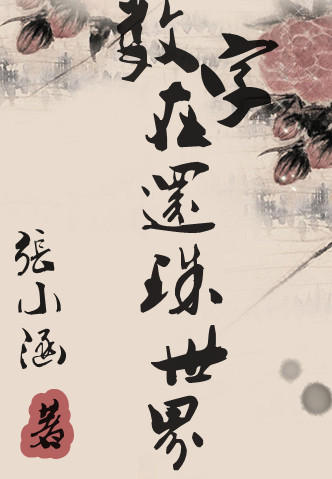 数字在還珠世界
張小涵
著